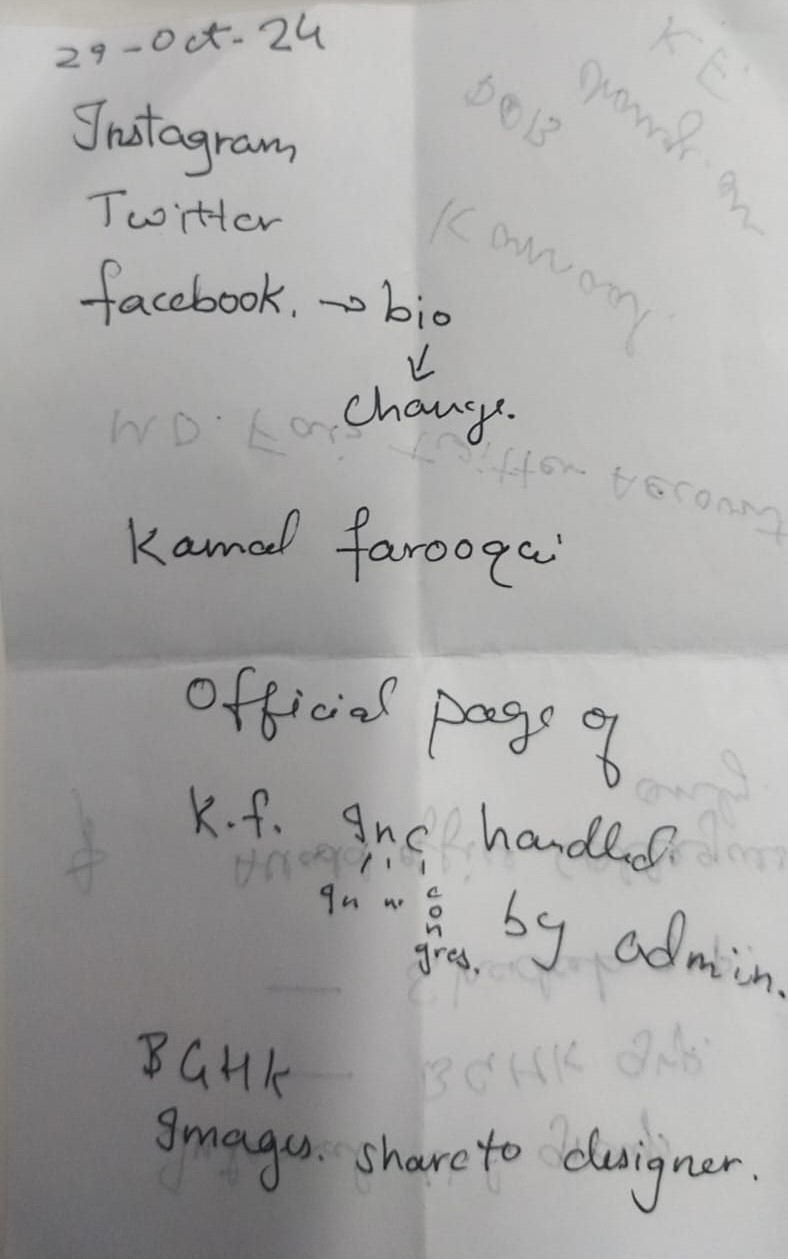 29-Oct-24
Instagram
Twitter
facebook. → bio
↓
Change.
Kamal farooqai
Official page of
K.f. Inc handled
In n con
gres. by admin.
BGHK
Images. share to designer.